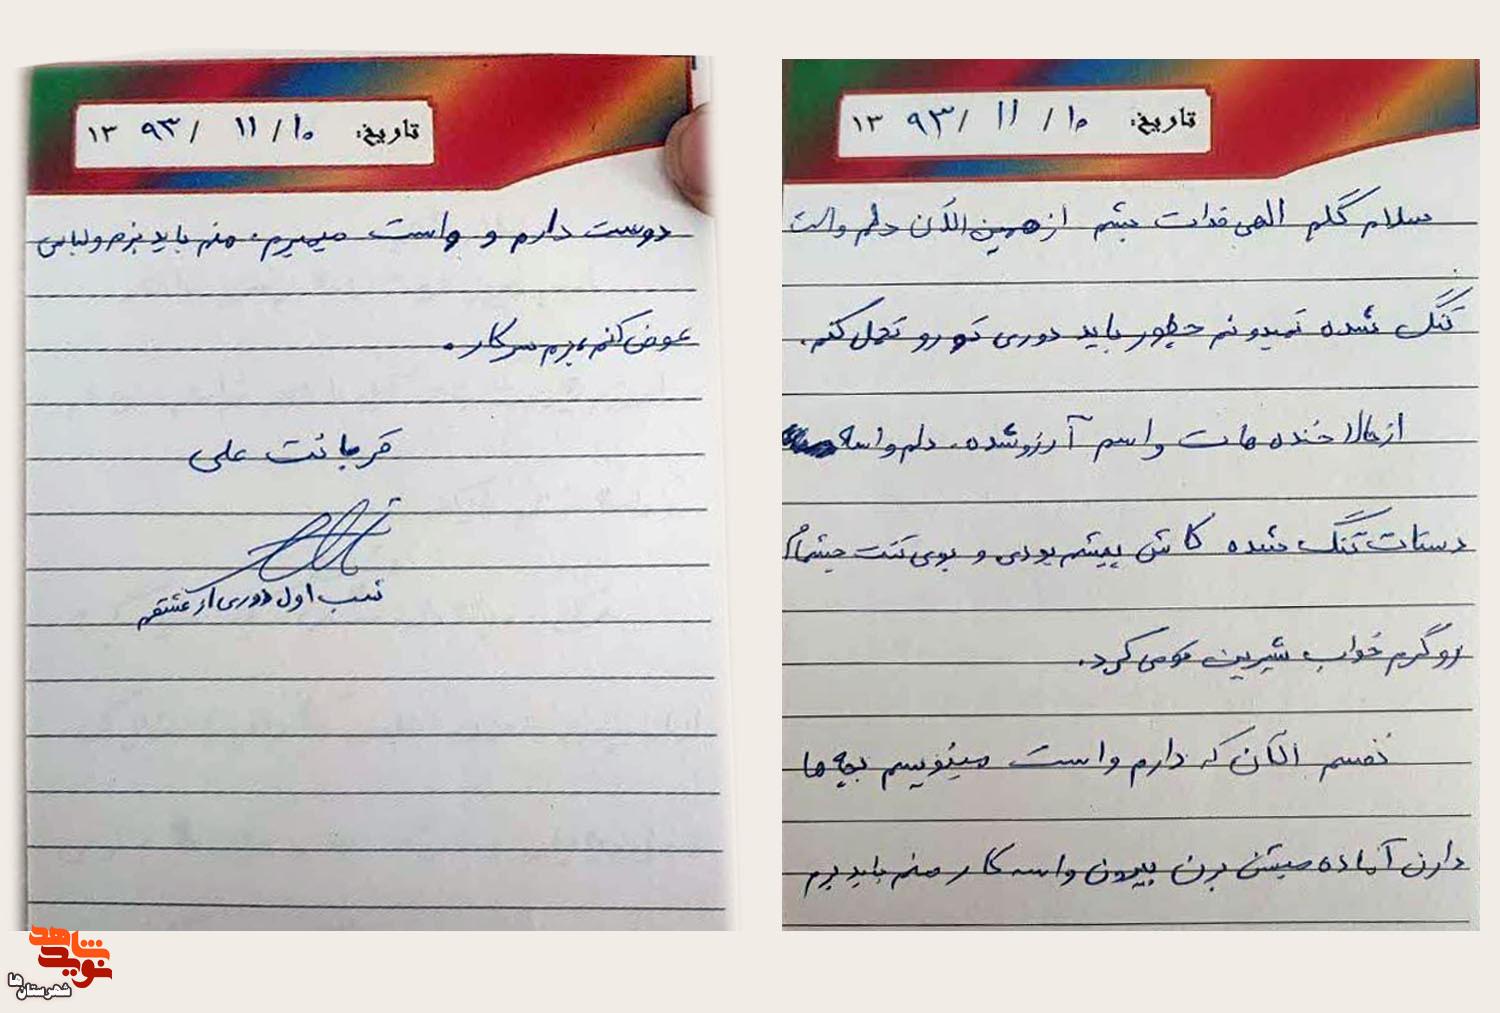 تاریخ: ۱۰ / ۱۱ / ۱۳۹۳
سلام گلم الهی فدات بشم از همین الآن دلم واست
تنگ شده نمیدونم چطور باید دوری تو رو تحمل کنم.
از حالا خنده هات واسم آرزو شده. دلم واسه
دستات تنگ شده کاش پیشم بودی و بوی تنت چشمام
رو گرم خواب شیرین می کرد.
نفسم الآن که دارم واست مینویسم بچه ها
دارن آماده میشن برن بیرون واسه کار منم باید برم
تاریخ: ۱۰ / ۱۱ / ۱۳۹۳
دوست دارم و واست میمیرم، منم باید برم و لباس
عوض کنم، برم سر کار.
قربانت علی
شب اول دوری از عشقم
نوید شاهد
شهرستان ها